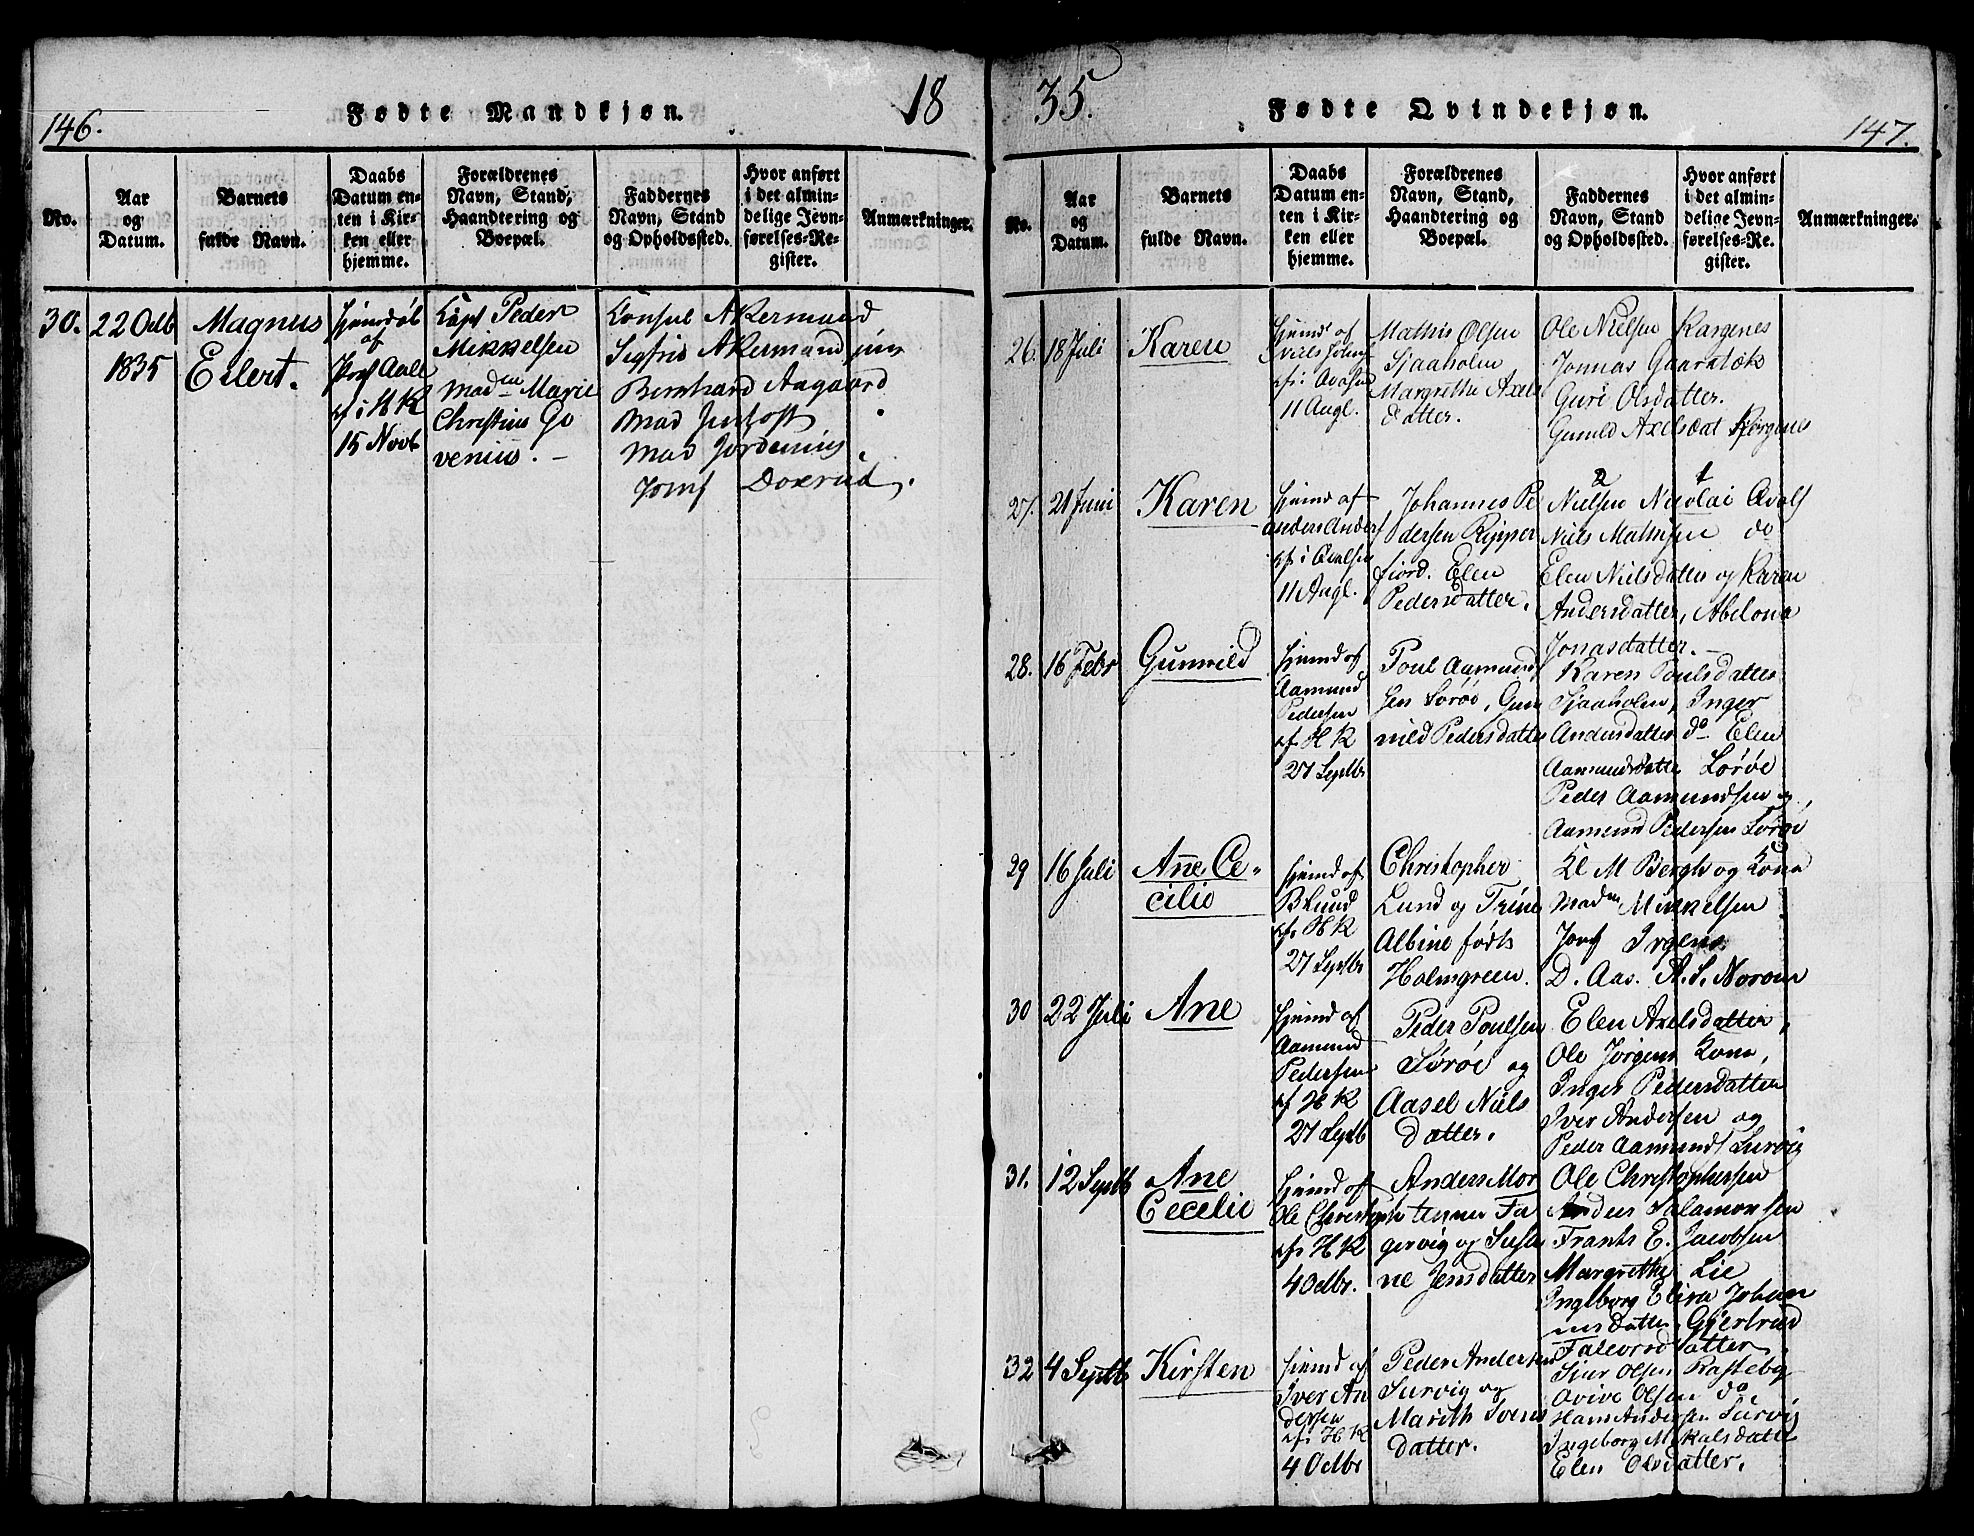 146.
Fødte Mandkjøn.
18
No.
Aar og Datum.
Barnets fulde Navn.
Daabs Datum enten i Kirken eller hjemme.
Forældrenes Navn, Stand, Haandtering og Boepæl.
Faddernes Navn, Stand og Opholdssted.
Hvor anført i det almindelige Jevnførelses-Register.
Anmærkninger.
30.
22 Octb
1835
Magnus
Eilert.
hjemdøbt
af
Prof Aall
cf i HK
15 Novb
Capt Peder
Mikkelsen
Madm Marie
Christine Go
venius. –
Consul Akermand
Sigfrid Akermand jun
Bernhard Aagaard
Mad
Mad
Jomf
35.
Fødte Qvindekjøn.
147.
No.
Aar og Datum.
Barnets fulde Navn.
Daabs Datum enten i Kirken eller hjemme.
Forældrenes Navn, Stand, Haandtering og Boepæl.
Faddernes Navn, Stand og Opholdssted.
Hvor anført i det almindelige Jevnførelses-Re. gister.
Anmærkninger.
26.
18 Juli
Karen
11 Aug.
Mathis Olsen
Sjaaholm
Margrethe Axels
datter.
Ole Nielsen Kargenes
Jonnas
Guri Olsdatter.
Gunild Axelsdat
27.
21 Juni
Karen
hjemd af
Anders Anders
cf i
11 Aug.
Johannes Pe
dersen Ripper
fiord. Elen
Pedersdatter.
2 1
Nielsen Nicolai
Niels Mathisen do
Elen Nielsdatter og Karen
Andersdatter, Abelona
Jonasdatter. –
28.
16 Febr
Gunnild
hjemd af
Aamund
Pedersen
cf. HK
27 Septbr
Poul Aamund
sen Sørøe, Gun
nild Pedersdatter
Karen Poulsdatter
Sjaaholm, Inger
Andersdatter do Elen
Aamundsdatter Sørøe
Peder Aamundsen og
Aamund Pedersen Sørøe
29
16 Juli
Ane Ce-
cilie
hjemd af
B Lund
cf. HK
27 Septbr
Christopher
Lund og Trine
Albine født
Holmgreen.
Kl M Bergh og Kone
Madm Mikkelsen
Jomf Irgens
D. Aas. A. S. Norom
30
22 Juli
Ane
hjemd af
Aamund
Pedersen
cf HK
27 Septb
Peder Poulsen
Sørøe og
Aasel Niels
datter.
Elen Axelsdatter,
Ole Jørgens Kone,
Inger Pedersdatter
Iver Andersen og
Peder Aamunds Survig
31.
12 Septb
Ane
Cecelie
hjemd af
Ole Christoph
cf. HK
4 Octbr.
Anders Mor
tensen Fa
gervig og Sus
ne Jensdatter
Ole Christophersen
Anders Salamonsen
Frants E. Jacobsen
Margrethe Lie
Ingeborg Elisa Johan
nesdatter, Giertrud
Falevrodatter.
32
4 Septb
Kirsten
hjemd af
Iver An
dersen
cf. HK
4 Octbr
Peder Andersen
Survig og
Marith Svens
datter.
Siur Olsen Rasteby
Ovive Olsen do
Hans Andersen Survig
Ingeborg Mikalsdatter
Elen Olsdatter.